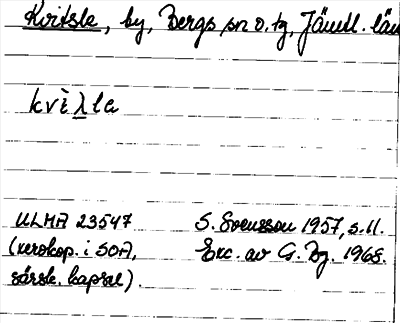 Kvitsle, by, Bergs sn o. tg, Jämtl. län
kvìλla
ULMA 23547 S. Svensson 1957, s. 11.
(xerokop. i SOA, Exc. av G. Bg. 1968.
särsk. kapsel).